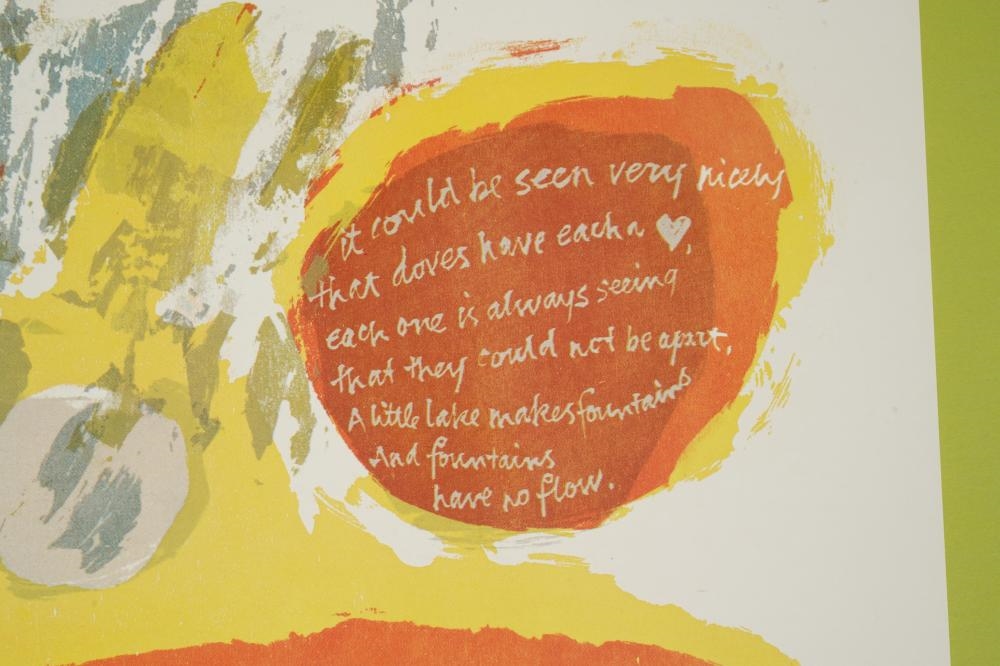 it could be seen very nicely
that doves have each a ♥,
each one is always seeing
that they could not be apart.
A little lake makes fountains
And fountains
have no flow.